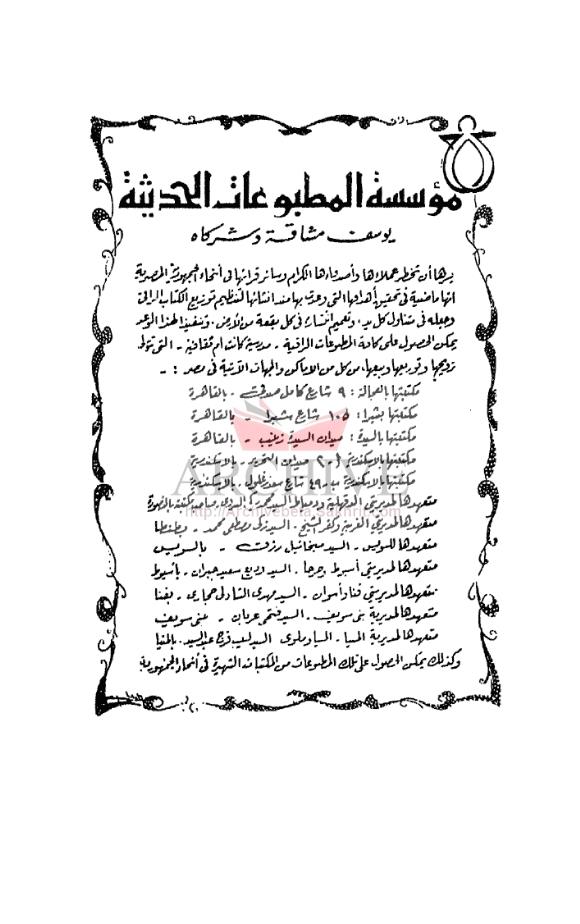 مؤسسة المطبوعات الحديثة
يوسف مشاقة وشركاه
يسرها أن تخطر عملاءها وأصدقاءها الكرام وسائر قرائها في أنحاء الجمهورية المصرية
أنها ماضية في تحقيق أهدافها التي وعدت بها منذ إنشائها لتنظيم توزيع الكتاب الراقي
وجعله في متناول كل يد، وتعميم انتشاره في كل بقعة من الأرض، وتنفيذا لهذا الوعد
يمكن الحصول على كافة المطبوعات الراقية - مدرسية كانت أم ثقافية - التي تتولى
ترويجها وتوزيعها وبيعها، من كل من الأماكن والجهات الآتية في مصر : -
مكتبتها بالفجالة : ٩ شارع كامل صدقي - بالقاهرة
مكتبتها بشبرا : ١٠٥ شارع شبرا - بالقاهرة
مكتبتها بالسيدة : ميدان السيدة زينب - بالقاهرة
مكتبتها بالإسكندرية ميدان التحرير - بالإسكندرية
مكتبتها بالإسكندرية ٤٩ شارع سعد زغلول - بالإسكندرية
متعهدها لمديريتي الدقهلية ودمياط السيد محمد بالمنصورة
متعهدها لمديريتي الغربية وكفر الشيخ - السيد زكي مصطفى محمد - بطنطا
متعهدها للسويس - السيد ميخائيل رزق - بالسويس
متعهدها لمديريتي أسيوط وجرجا - السيد وديع سعيد جبران - بأسيوط
متعهدها لمديريتي قنا وأسوان - السيد مهدي الشاذلي حجازي - بقنا
متعهدها لمديرية بني سويف - السيد فتحي عريان - ببني سويف
متعهدها لمديرية المنيا - السيد لبيب فرج عبد السيد - بالمنيا
وكذلك يمكن الحصول على تلك المطبوعات من المكتبات الشهيرة في أنحاء الجمهورية
ARCHIVE
http://Archivebeta.Sakhrit.com